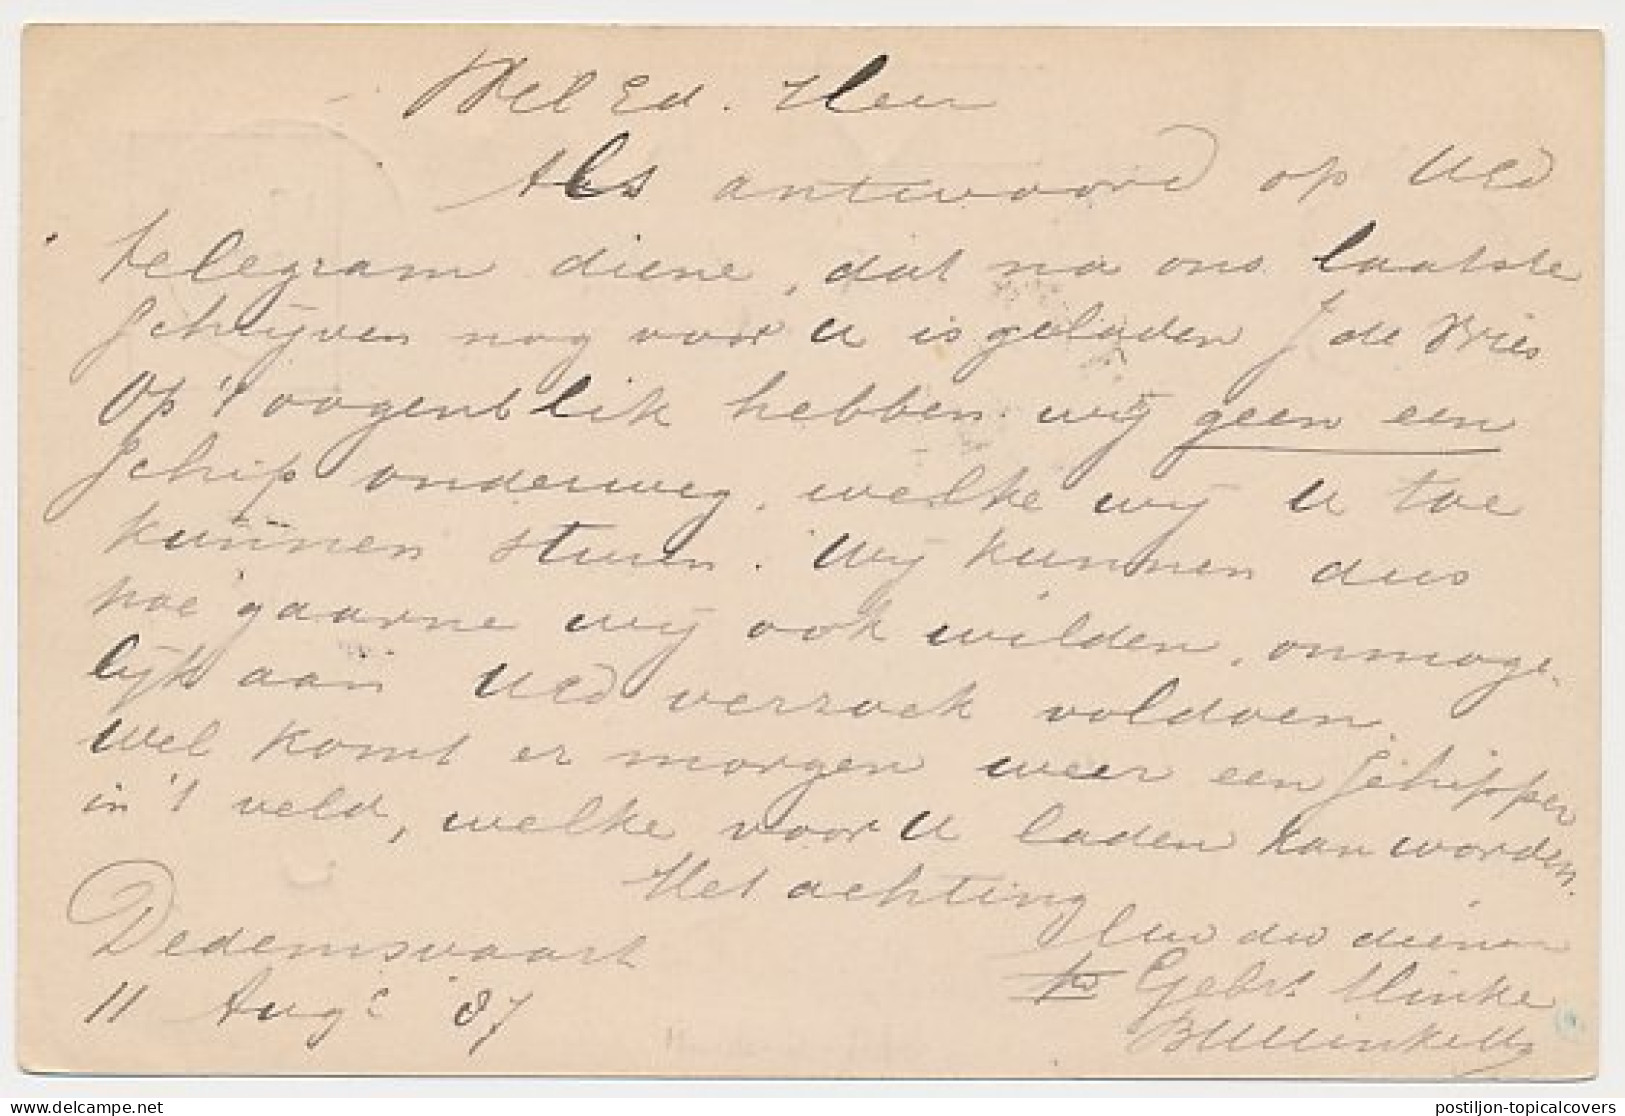 Wel Ed. Heer
Als antwoord op UEd
telegram diene, dat na ons laatste
schrijven nog voor U is geladen J de Vries
Op 't oogenblik hebben wij geen een
schip onderweg, welke wij U toe
kunnen sturen. Wij kunnen dus
hoe gaarne wij ook wilden, onmoge-
lijk aan UEd verzoek voldoen.
Wel komt er morgen weer een schipper
in 't veld, welke voor U laden kan worden.
Met achting
Uw dw dienaar
Dedemsvaart
po Gebrs Minke
11 Aug '87
postiljon-topicalcovers